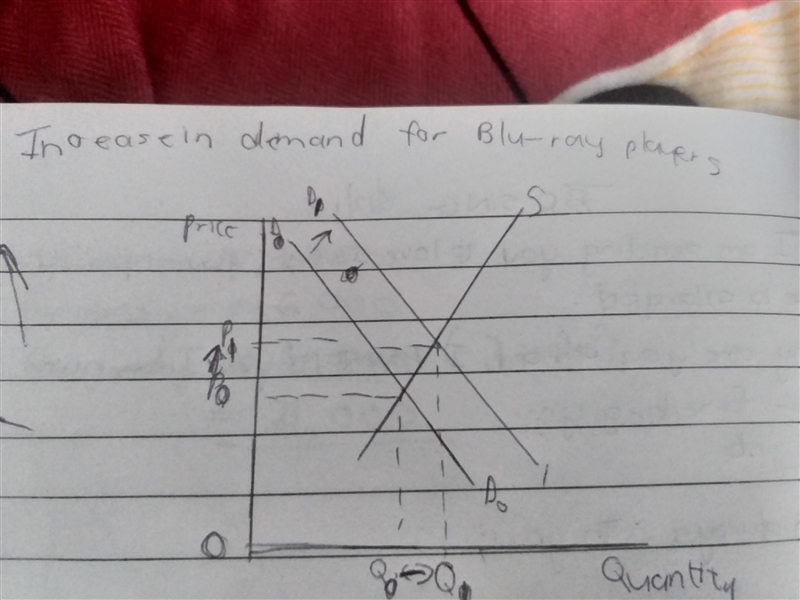 Increase in demand for Blu-ray players
D1 S
Price D0
P1
P0
D0 1
O
Q0 ↔ Q1 Quantity